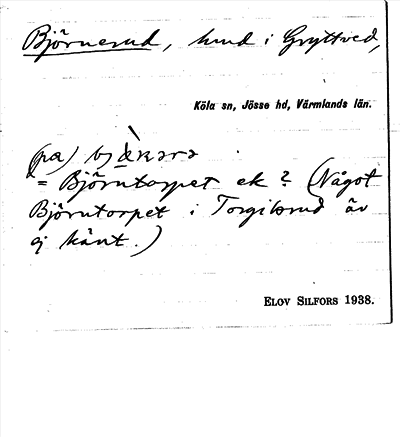 Björnerud, hmd i Gryttved,
Köla sn, Jösse hd, Värmlands län.
(på)
= Björntorpet ek? (Något
Björntorpet i Torgilsrud är
ej känt.)
ELOV SILFORS 1938.